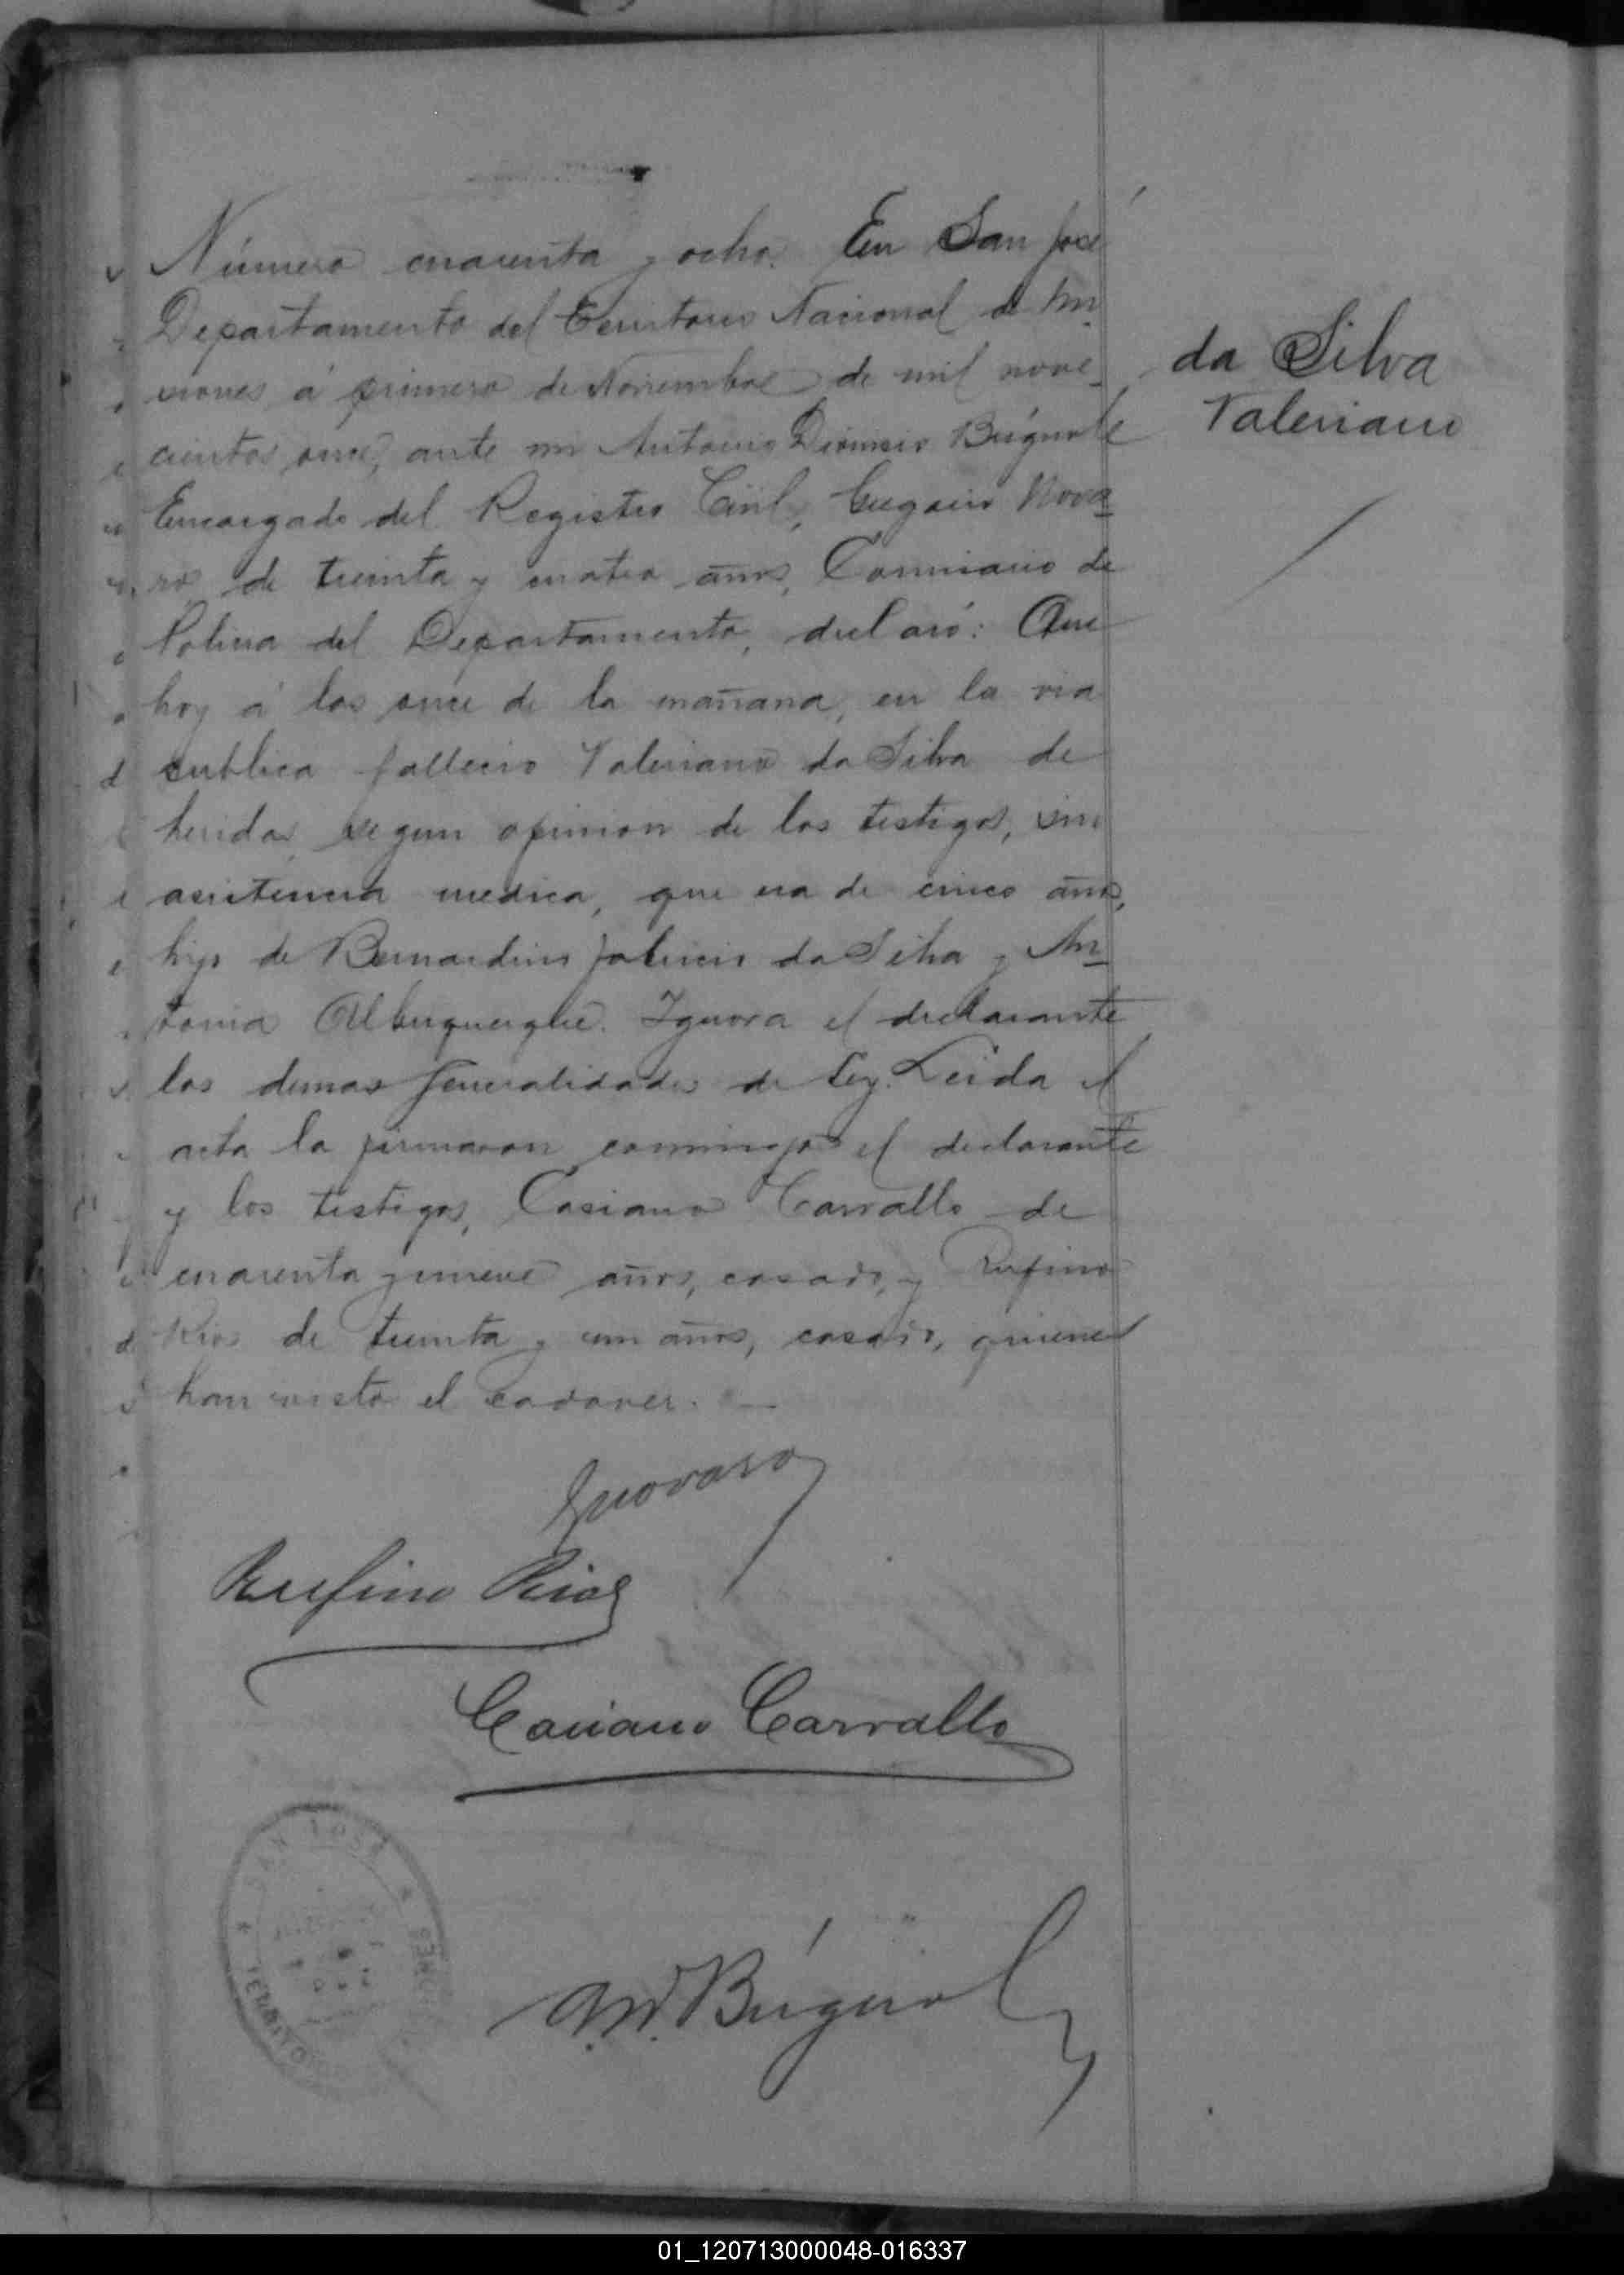 Número cuarenta y ocho. En San José
Departamento del Territorio Nacional de Mi
siones á primero de Noviembre de mil nove-
cientos once, ante mi Antonio Dionisio Búgnole
Encargado del Registro Civil, Gregorio Nova-
ro de treinta y cuatro años, Comisario de
Policia del Departamento, declaró: Que
hoy á las once de la mañana, en la via
publica fallecio Valeriano da Silva de
heridas segun opinion de los testigos, sin
asistencia medica, que era de cinco años,
hijo de Bernardino da Silva y An-
tonia Alburquerque. Ignora el declarante
las demas generalidades de ley. Leida el
acta la firmaron conmigo el declarante
y los testigos, Casiano Carvallo de
cuarenta y nueve años, casado, y Rufino
Rios de treinta y un años, casado, quienes
han visto el cadaver.
da Silva
Valeriano
GNovaro
Rufino Rios
Casiano Carvallo
SAN JOSE
TERRITORIO
MISIONES
01_120713000048-016337